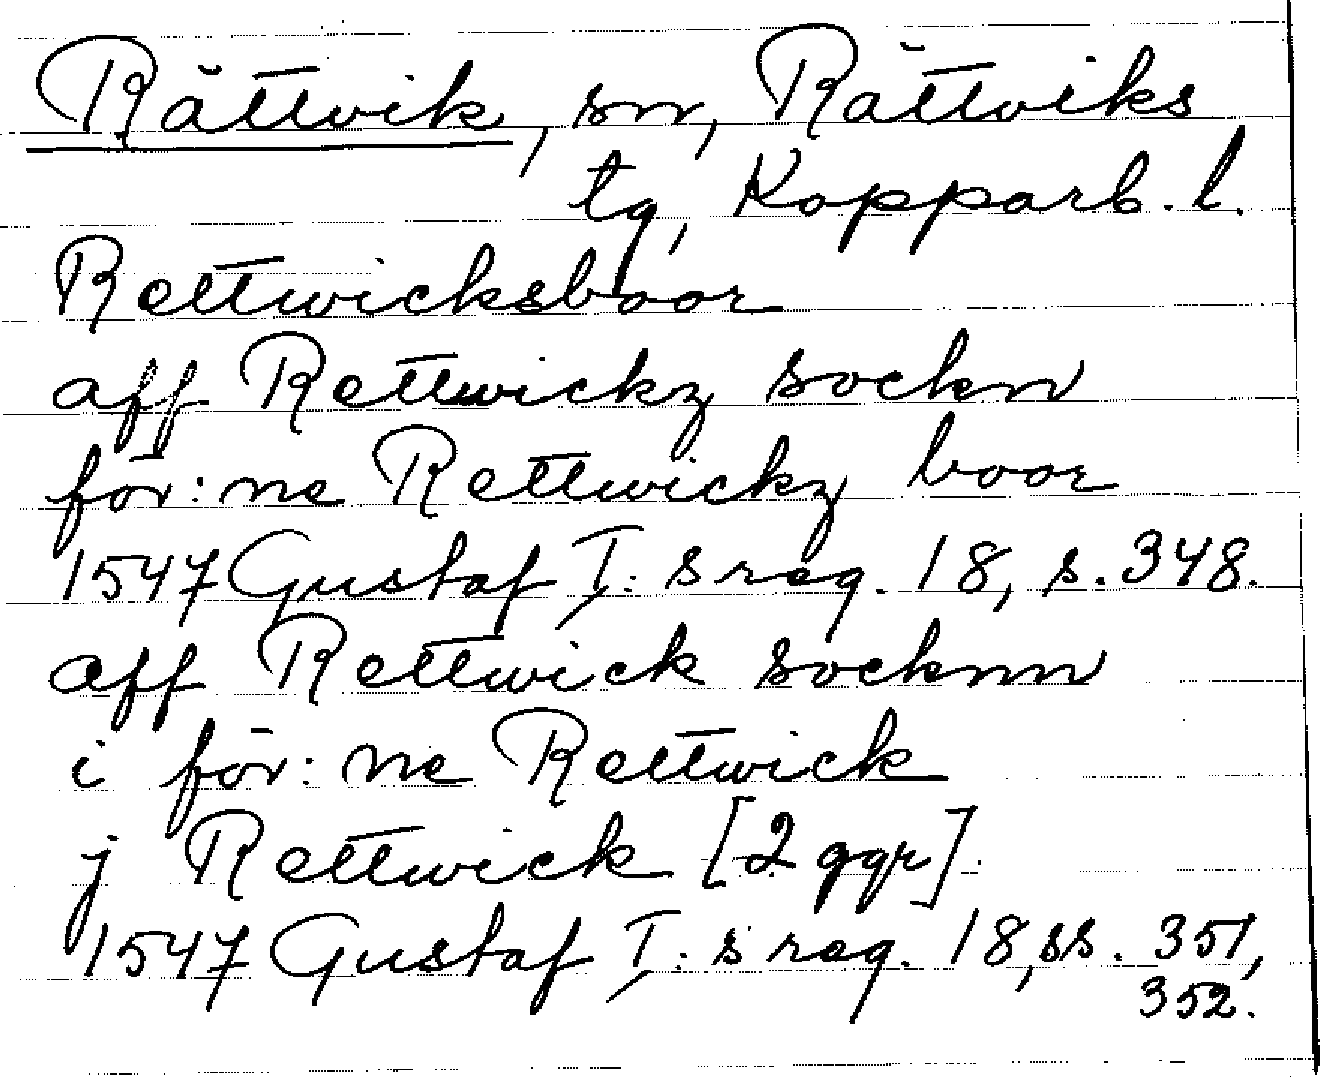 Rättvik, sn, Rättviks
tg, Kopparb. l.
Rettwicksboor
aff Rettwickz sockn
för:ne Rettwickz boor
1547 Gustaf I:s reg. 18, s. 348.
aff Rettwick socknn
i för:ne Rettwick
j Rettwick [2 ggr]
1547 Gustaf I:s reg. 18, ss. 351,
352.